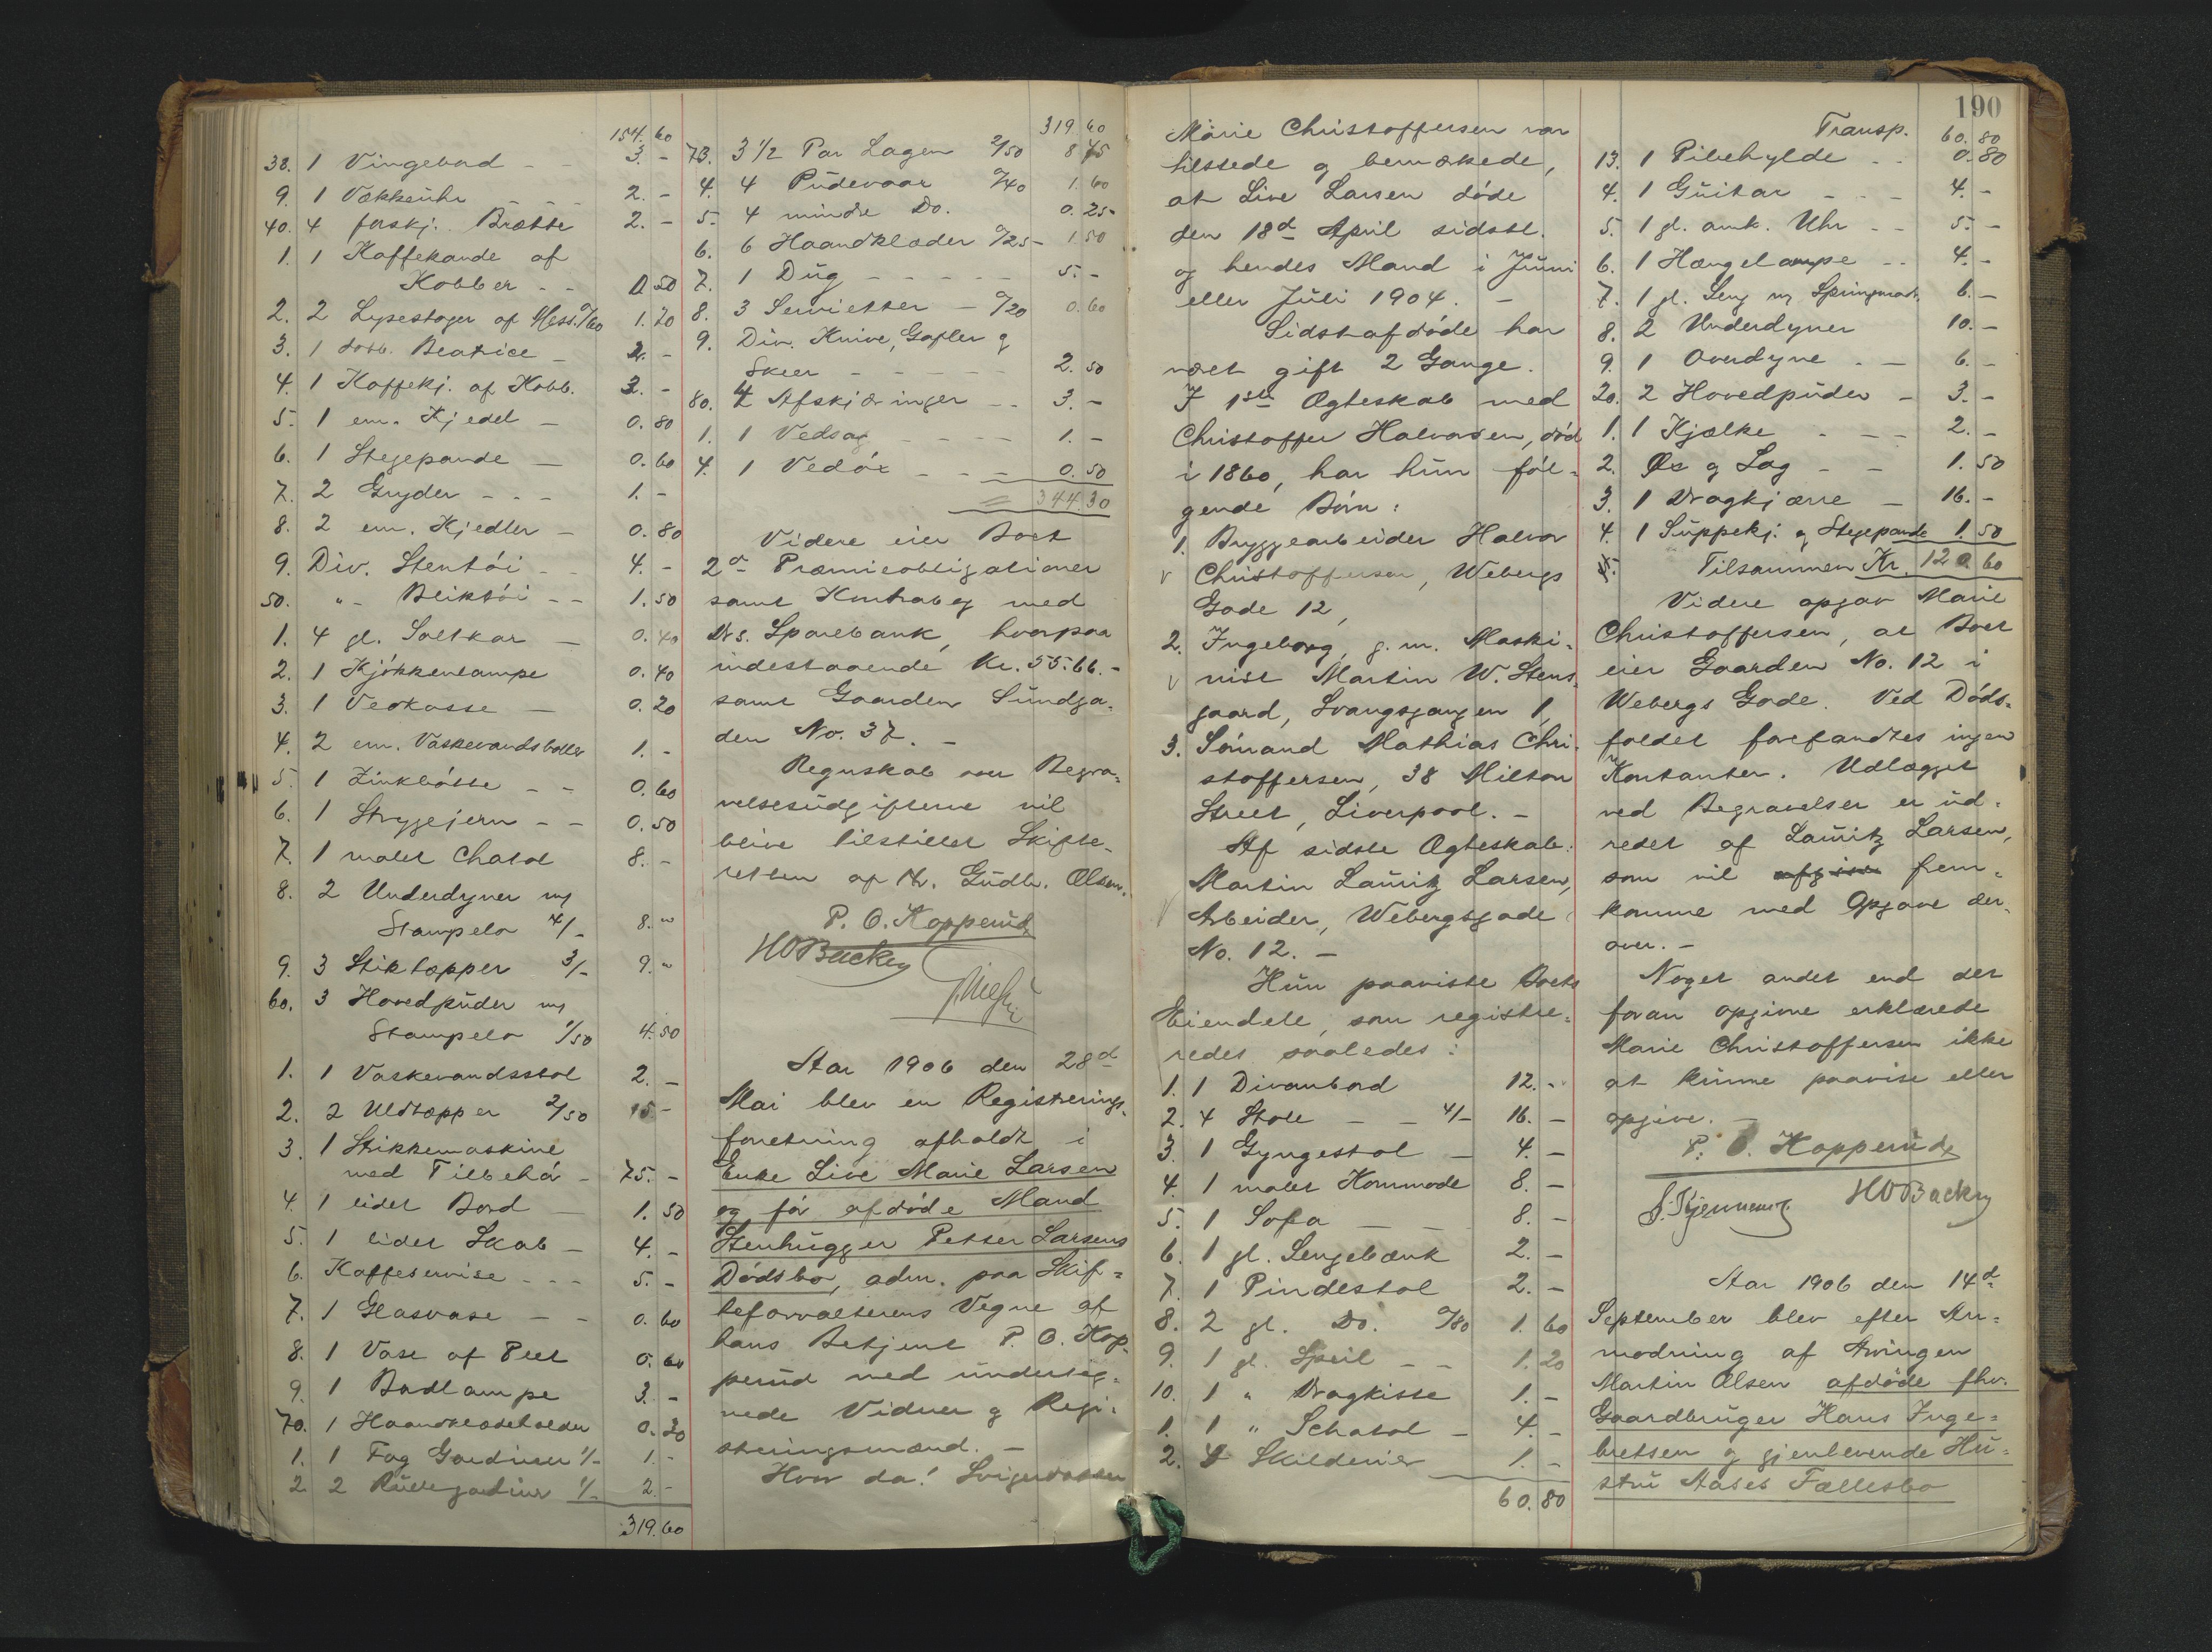 154.60
38. 1 Vingebord - - 3. -
9. 1 Vækkeuhr - - - 2. -
40. 4 forskj. Brætte 2. -
1. 1 Kaffekande af
Kobber - - 1.50
2. 2 Lysestager af Mess. 0/60 1.20
3. 1 dobb. Beatrice - 2. -
4. 1 Kaffekj. af Kobb. 3. -
5. 1 em. Kjedel - 0.80
6. 1 Stegepande - 0.60
7. 2 Gryder - - - 1. -
8. 2 em. Kjedler - 0.80
9. Div. Stentöi - - 4. -
50. " - Bliktöi - - 1.50
1. 4 gl. Saltkar - 0.40
2. 1 Kjökkenlampe 0.40
3. 1 Vedkasse - 0.20
4. 2 em. Vaskevandsboller 1. -
5. 1 Zinkbötte - - 0.60
6. 1 Strygejern - - 0.50
7. 1 malet Chatol 8. -
8. 2 Underdyner m/
Stampelo 4/- 8. "
9. 3 Stiktæpper 3/- 9. "
60. 3 Hovedpuder m/
Stampelo 1/50 4.50
1. 1 Vaskevandsstol 2. -
2. 2 Uldtæpper 2/50 5 -
3. 1 Strikkemaskine
med Tilbehör - 75. -
4. 1 lidet Bord - 1.50
5. 1 lidet Skab - 4. -
6. Kaffeservise - - - 5. -
7. 1 Glasvase - - 0.60
8. 1 Vase af Plet 0.60
9. 1 Bordlampe 3. -
70. 1 Haandklædeholder 0.20
1. 1 Fag Gardiner 1/- 1. -
2 2 Rullegardiner 1/- 2. -
319.60
319.60
73. 3 1/2 Par Lagen 2/50 8 75
4. 4 Pudevaar 0/40 1.60
5. 4 mindre Do. 0.25
6. 6 Haandklæder 0/25 - 1.50
7. 1 Dug - - - - - 5. -
8. 3 Servietter - 0/20 0.60
9. Div. Knive, Gafler &
Skeer - - - - - 2.50
80. 4 Afskjæringer - - 3. -
1. 1 Vedsag - - - - 1. -
4. 1 Vedöx - - - 0.50
= 344.30
Videre eier Boet
2de Præmieobligationer
samt Kontrabog med
Drs. Sparebank, hvorpaa
indestaaende Kr. 55.66. -
samt Gaarden Sundga-
den No. 37. -
Regnskab over Begra-
velsesudgifterne vil
blive tilstillet Skifte-
retten af Hr. Gudb. Olsen.
P. O. Kopperud
HO Backey
Aar 1906 den 28d
Mai blev en Registrerings-
forretning afholdt i
Enke Live Marie Larsen
og för afdöde Mand
Stenhugger Petter Larsens
Dödsbo, adm. paa Skif-
teforvalterens Vegne af
hans Betjent P. O. Kop-
perud med underteg-
nede Vidner & Regi-
streringsmænd. -
Hvor da! Svigerdatter
190
Marie Christoffersen var
tilstede og bemærkede,
at Live Larsen döde
den 18d April sidstl.
og hendes Mand i Juni
eller Juli 1904. -
Sidstafdöde har
været gift 2 Gange.
I 1ste Ægteskab med
Christoffer Halvorsen, död
i 1860, har hun föl-
gende Börn:
1. Bryggearbeider Halvor
v Christoffersen, Webergs
Gade 12,
2. Ingeborg, g. m. Maski-
v nist Martin W. Stens-
gaard, Svangsgangen 1,
3. Sömand Mathias Chri-
stoffersen, 38 Milton
Street, Liverpool. -
Af sidste Ægteskab:
Martin Lauritz Larsen,
v Arbeider, Webergsgade
No. 12. -
Hun paaviste Boets
Eiendele, som registre-
redes saaledes:
1. 1 Divanbord 12. -
2. 4 Stole - - 4/- 16. -
3. 1 Gyngestol - 4. -
4. 1 malet Kommode 8. -
5. 1 Sofa - - 8. -
6. 1 gl. Sengebænk 2. -
7. 1 Pindestol 2. -
8. 2 gl. Do. 0/80 1.60
9. 1 gl. Speil - - 1.20
10. 1 " Dragkiste 1. -
1. 1 " Schatol - 4. -
2. 4 Skilderier 1. -
60.80
Transp. 60.80
13. 1 Pibehylde - - 0.80
4. 1 Guitar - - - 4. -
5. 1 gl. amk. Uhr - - 5. -
6. 1 Hængelampe - - 4. -
7. 1 gl. Seng m/ Springmadr. 6. -
8. 2 Underdyner 10. -
9. 1 Overdyne - - 6. -
20. 2 Hovedpuder - 3. -
1. 1 Kjælke - - - 2. -
2. Öx & Sag - - 1.50
3. 1 Dragkjærre - 16. -
4. 1 Suppekj. & Stegepande 1.50
5. Tilsammen Kr. 120.60
Videre opgav Marie
Christoffersen, at Boet
eier Gaarden No. 12 i
Webergs Gade. Ved Döds-
faldet forefandtes ingen
Kontanter. Udlægget
ved Begravelser er ud-
redet af Lauritz Larsen,
som vil afgive frem-
komme med Opgave der-
over. -
Noget andet end det
foran opgivne erklærede
Marie Christoffersen ikke
at kunne paavise eller
opgive. -
P. O. Kopperud
HO Backey
Aar 1906 den 14d
September blev efter An-
modning af Arvingen
Martin Olsen afdöde fhv.
Gaardbruger Hans Inge-
bretsen og gjenlevende Hu-
stru Aases Fællesbo